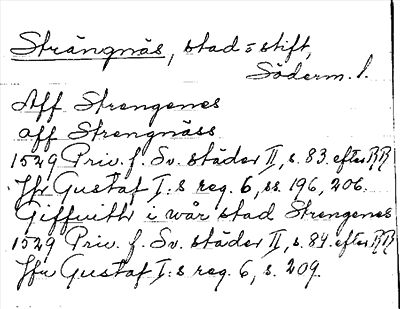 Strängnäs, stad o stift,
Söderm. l.
Aff Strengenes
aff Strengnäss
1529 Priv. f. Sv. städer II, s. 83. efter RR
Jfr Gustaf I:s reg. 6, ss. 196, 206.
Giffuith i wår stad Strengenes
1529 Priv. f. Sv. städer II, s. 84. efter RR
Jfr Gustaf I:s reg. 6, s. 209.